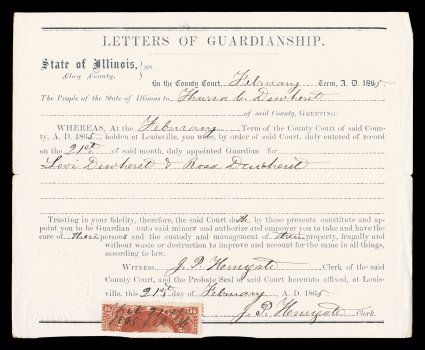 LETTERS OF GUARDIANSHIP.
State of Illinois, } ss.
Clay County,
In the County Court, February Term, A. D. 1865
The People of the State of Illinois to Dewhirst
of said County, GREETING:
WHEREAS, At the February Term of the County Court of said Coun-
ty, A. D. 1865, holden at Louisville, you were, by order of said Court, duly entered of record
on the 21st. of said month, duly appointed Guardian for
Levi Dewhirst & Rosa Dewhirst
Trusting in your fidelity, therefore, the said Court doth by these presents constitute and ap-
point you to be Guardian unto said minors and authorize and empower you to take and have the
care of their persons and the custody and management of their property, frugally and
without waste or destruction to improve and account for the same in all things,
according to law.
WITNESS, J. P. Clerk of the said
County Court, and the Probate Seal of said Court hereunto affixed, at Louis-
ville, this 21st day of February, A. D. 1865
J. P. Clerk